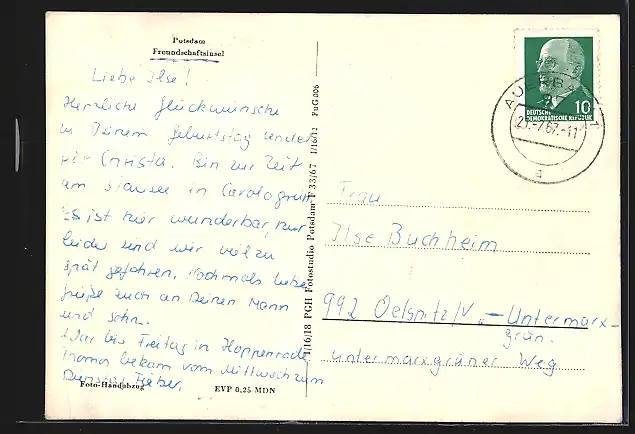 Potsdam
Freundschaftsinsel
Liebe Ilse!
Herzliche Glückwünsche
zu Deinem Geburtstag sendet
Dir Christa. Bin zur Zeit
am Stausee in Carolagrün
Es ist hier wunderbar, nur
leider sind wir viel zu
spät gefahren. Nochmals liebe
Grüße auch an Deinen Mann
und Sohn.
War bis Freitag in Hoppenrade
Thomas bekam vom Mittwoch zum
Fieber.
Foto-Handabzug
EVP 0,25 MDN
I/16/18 PGH Fotostudio Potsdam F 33/67 I/16/12 FuG 006
DEUTSCHE
DEMOKRATISCHE REPUBLIK
10
AUERBACH
21.-7.67.-11
a
Frau
Ilse Buchheim
992 Oelsnitz/V. – Untermarx-
grün.
Untermarxgrüner Weg